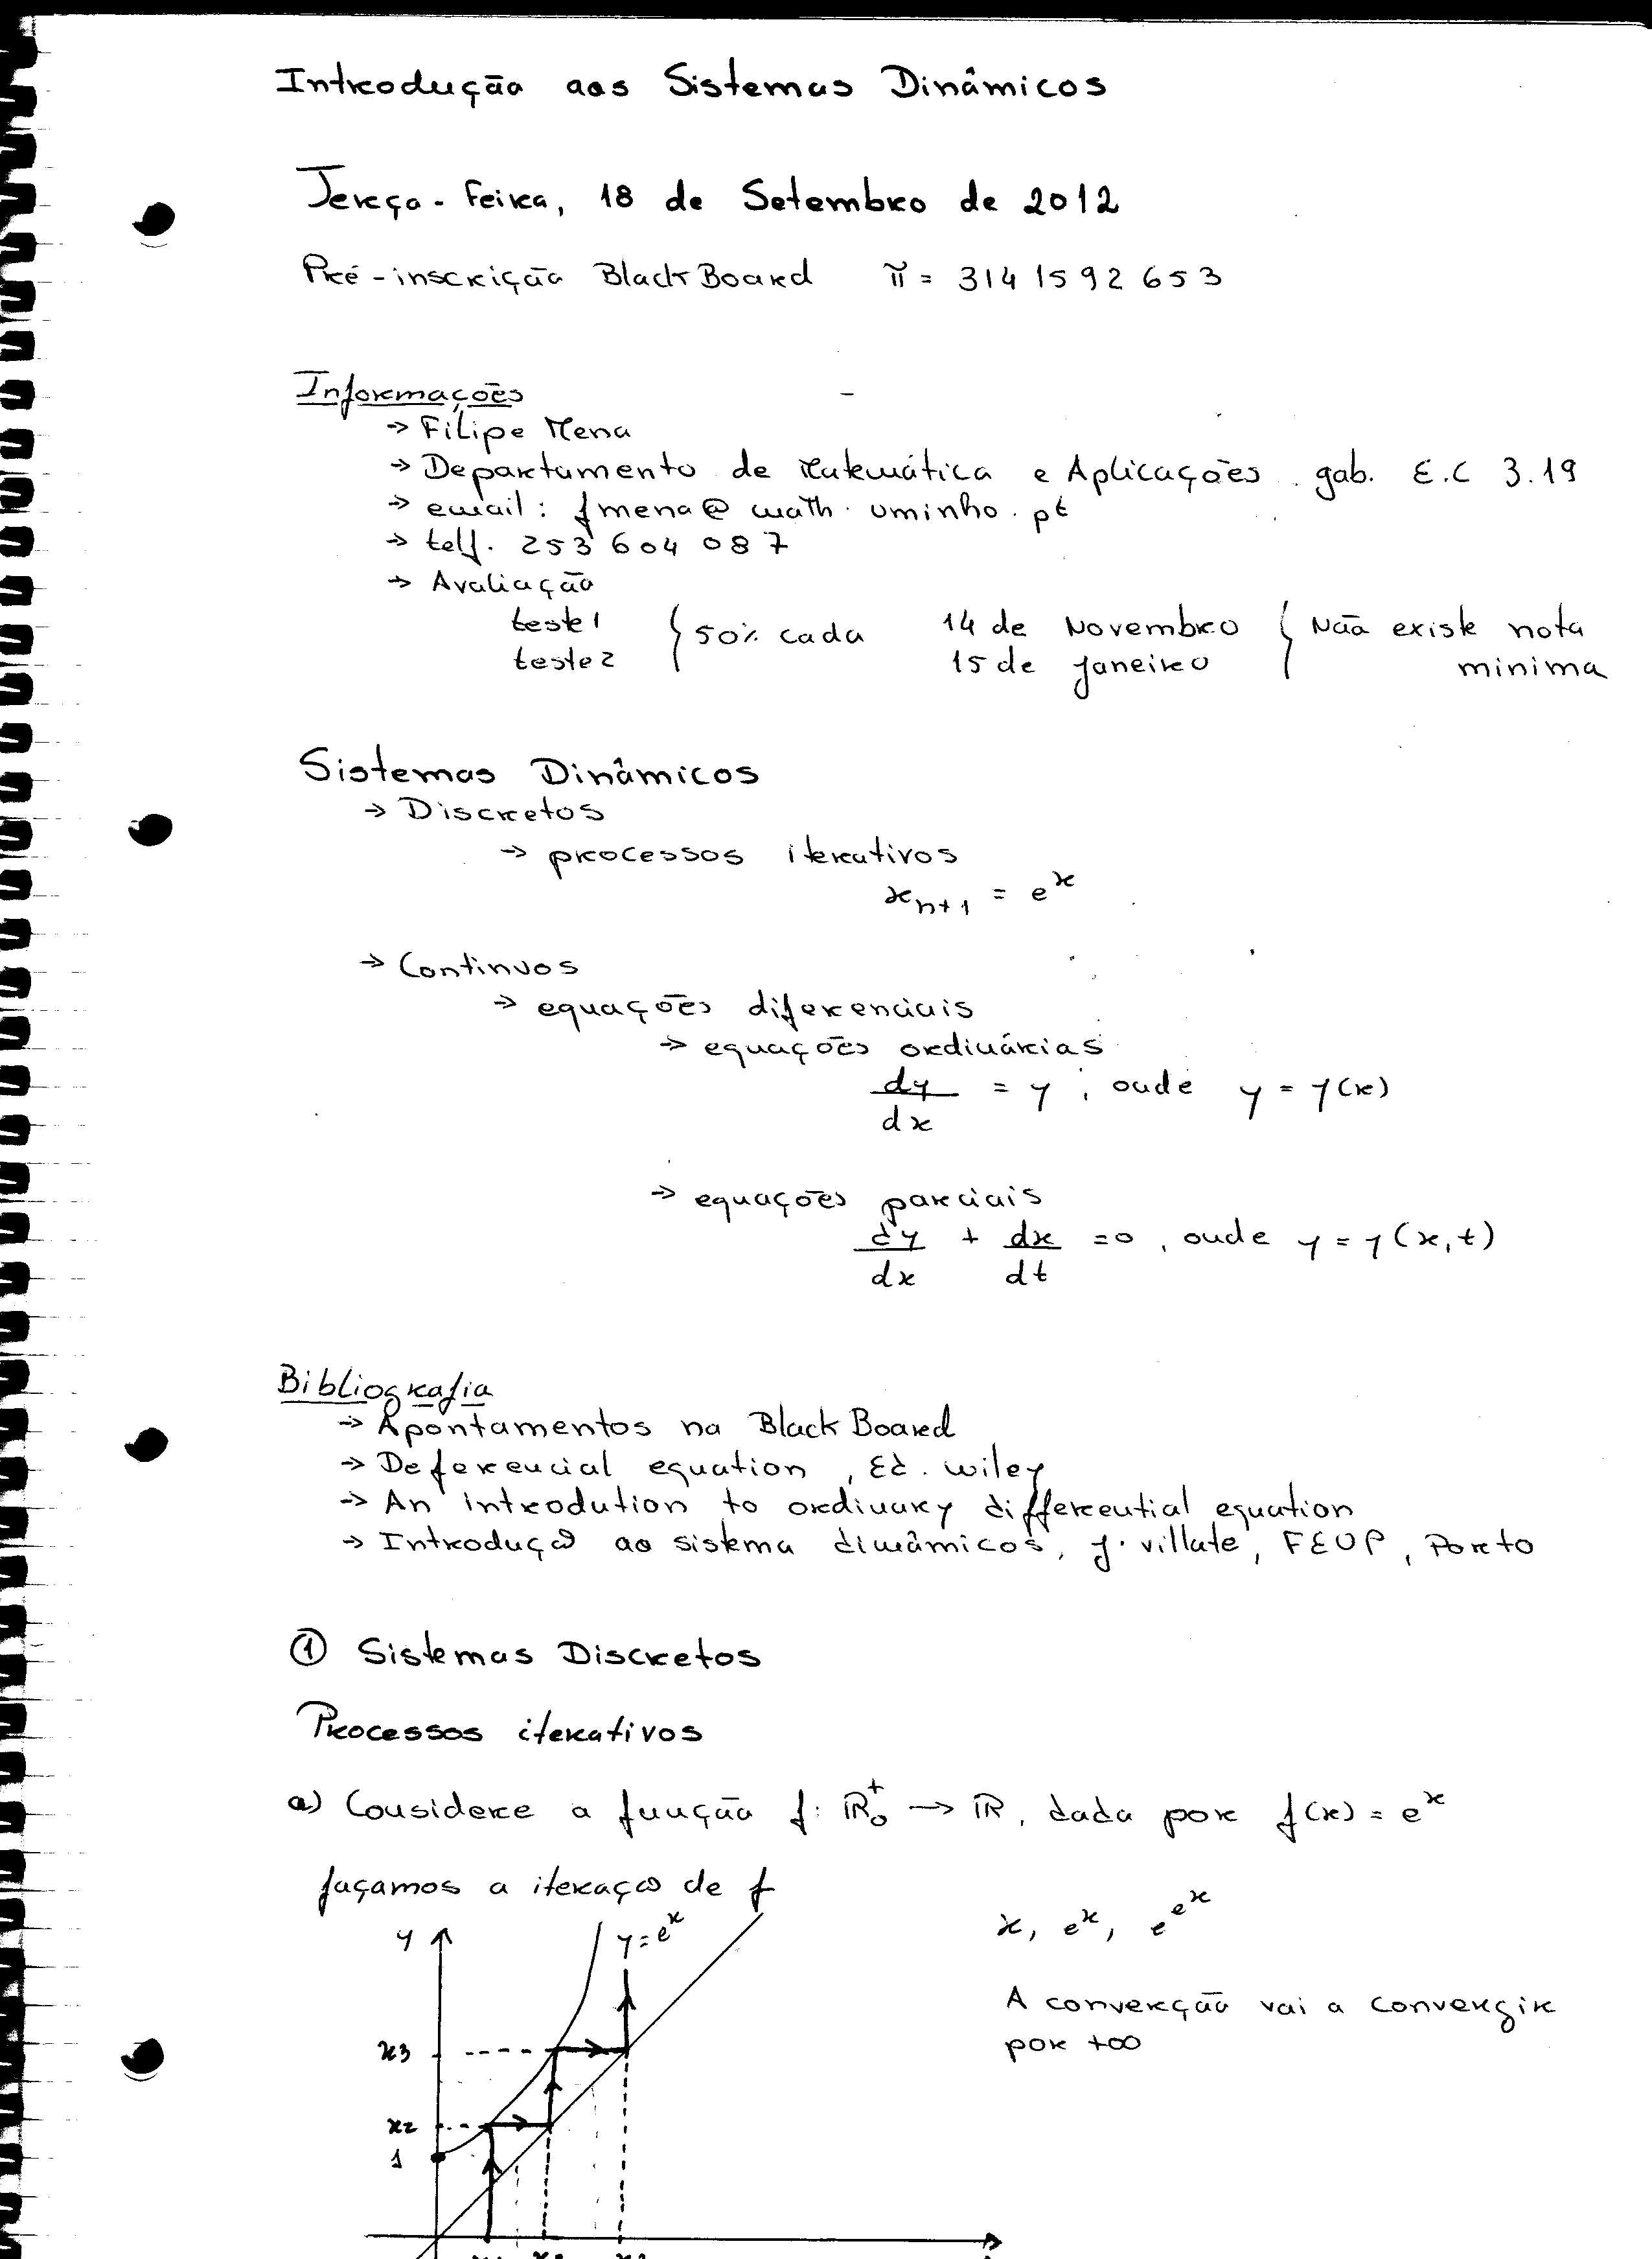 Introdução aos Sistemas Dinâmicos
Terça-Feira, 18 de Setembro de 2012
Pré-inscrição BlackBoard π = 3141592653
Informações
→ Filipe Mena
→ Departamento de Matemática e Aplicações. gab. E.C 3.19
→ email: fmena@math.uminho.pt
→ telf. 253 604 087
→ Avaliação
teste 1 { 50% cada 14 de Novembro { Não existe nota
teste 2 15 de Janeiro minima
Sistemas Dinâmicos
→ Discretos
→ processos iterativos
x_{n+1} = e^x
→ Continuos
→ equações diferenciais
→ equações ordinárias
dy/dx = y, onde y = y(x)
→ equações parciais
dy/dx + dx/dt = 0, onde y = y(x,t)
Bibliografia
→ Apontamentos na BlackBoard
→ Deferencial equation, Ed. wiley
→ An introdution to ordinary differential equation
→ Introdução ao sistema dinâmicos, J. villate, FEUP, Porto
① Sistemas Discretos
Processos iterativos
a) Considere a função f: ℝ₀⁺ → ℝ, dada por f(x) = e^x
façamos a iteração de f
y y = e^x x, e^x, e^{e^x}
A converção vai a convergir
por +∞
x3
x2
1